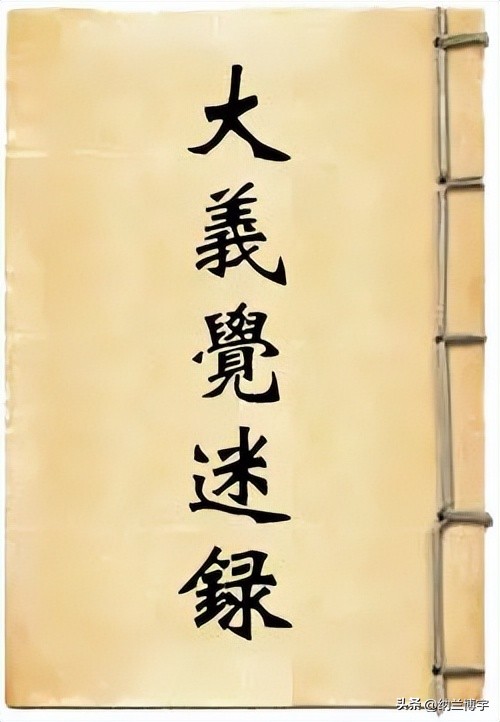 大義覺迷錄
头条 @纳兰博宇